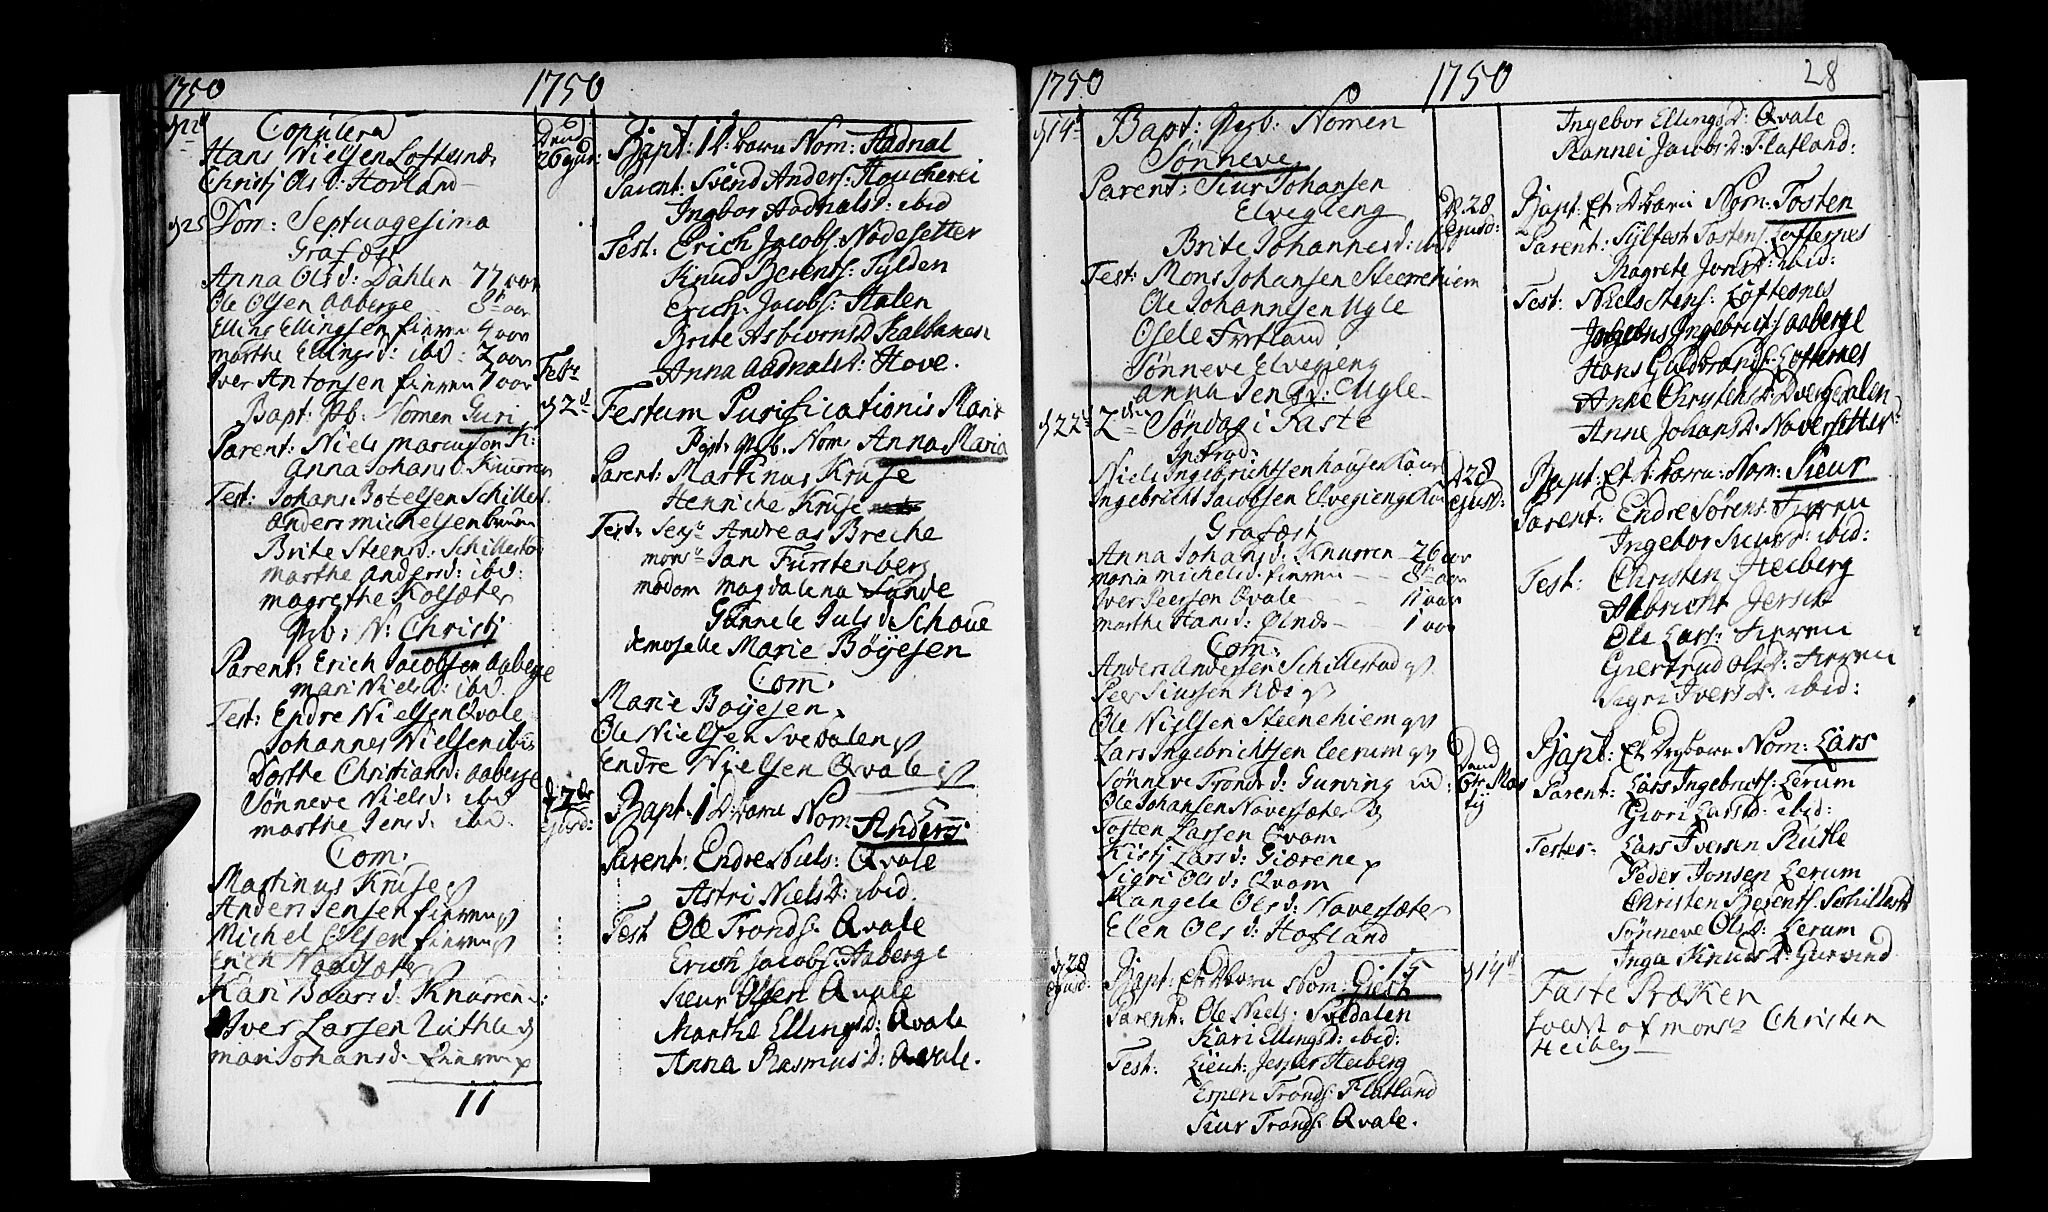 1750
1750
d 12
Copulera
Hans Nielsen Loftesnæs
Christj Ols d: Hovland
d 25
Dom: Septuagesima
Grafæst
Anna Ols d: Dahlen 77 aar
Ole Olsen Aaberge 8 aar
Elling Ellingsen finren 4 aar
marthe Ellings d: ibd: 2 aar
Iver Antonsen finren 7 aar
Bapt: Pb: Nomen Guri
Parent: Niels marcuson K:
Anna Johans d: Knurren
Test: Johans Botelsen Schillest:
Anders michelsen
Brite Steens d: Schillesta
marthe anders d: ibd:
magrethe Kolsæter
Pgb: N: Christj
Parent: Erich Jacobsen aaberge
mari Niels d: ibd:
Test: Endre Nielsen Qvale
Johannes Nielsen ibid
Dorthe Christians d: aaberge
Sønneve Niels d: ibd
marthe Jens d: ibd.
Com:
Martinus Kruse
Anders Jensen finren
Michel Olsen finren
Erich Navesæter
Kari Baars d: Knurren
Iver Larsen Ruthle
mari Johans d: finren
11
Dend
26 ejusd:
Bapt: 1 D: barn Nom: Aadnal
Parent: Svend Anders: Houcherei
Ingbor Aadnals d: ibid
Test: Erich Jacobs: Nodesetter
Knud Berents: Tylden
Erich Jacobs: Stalen
Brite Asbiorns D: Kalbanes
Anna Aadnals d: Hove.
Febr
d 2
Festum Purificationis Mariæ
Bapt. Pgb. Nom: Anna Maria
Parent: Martinus Kruse
Henriche Kruse
Test: Sen Andreas Breche
mons Jan Fürstenberg
madam magdalena Sande
Gunnele Juls d: Schoue
demoselle Marie Böyesen
Com:
Marie Boyesen
Ole Nielsen Svedalen
Endre Nielsen Qvale
5
d 7de
ejusd:
Bapt. 1 D: barn Nom: Anders
Parent: Endre Niels: Qvale
Astri Niels D: ibid.
Test Ole Tronds: Qvale
Erich Jacobs: Aaberge
Siur Olsen Qvale
Marthe Ellings d: Qvale
Anna Rasmus d: Qvale.
1750
1750
28
d 14
Bapt: Pgb: Nomen
Sønneve
Parent: Siur Johansen
Elvegieng
Brite Johannes d: ibid
Test: Mons Johansen Steenehiem
Ole Johannesen Ugle
Osele Frtland
Sønneve Elvegieng
anna Jens d: Ugle
d 22
2den Søndag i Faste
Introd:
Niels Ingebrichtsen hausen
Ingebricht Jacobsen Elvegieng
Grafæst
Anna Johans d: Knurren 26 aar
maria michels d: finren 8 aar
Iver Peersen Qvale 11 aar
marthe Hans d: Ølnds 1 aar
Com:
Anders Andersen Schillestad
Peer Siursen Næs
Ole Nielsen Steenehiem
Lars Ingebrichtsen leerum
Sønneve Tronds d: Gurving
Ole Johansen Navesæter
Tosten Larsen Qvam
Kistj Lars d: Giærene
Sigri Ols d: Qvam
Rangele Ols d: Naversæter
Elen Ols d: Hofland
15
d 28
ejusd:
Bapt: Et D barn Nom: Giert
Parent: Ole Niels: Svedalen
Kari Ellings d: ibid:
Test: Lieut: Jesper Heiberg
Espen Tronds: Flatland
Siur Tronds: Qvale.
Ingebor Ellings D: Qvale
Rannei Jacobs D: Flatland:
d 28
ejusd:
Bapt: Et D barn Nom: Tosten
Parent: Sylfest Tostens: Loftesnes
Magrete Jons D: ibid:
Test: Niels Stens: Loftesnes
Ingebrict: aaberge
Hans Guldbrands: Loftesnes
Anne Christens D: Dvergedalen
Anne Johans D: Naversetter
d 28
ejusd:
Bapt: Et D. barn: Nom: Siur
Parent: Endre Sörens: Firren
Ingebor Siurs D: ibid:
Test: Christen Heiberg
Albricht Jersin
Ole Lars: Firren
Giertrud Ols D: Firren
Sigri Ivers D: ibid:
Dend
6te Mar
tij
Bapt: Et Drg barn Nom: Lars
Parent: Lars Ingebricts: Lerum
Giori Lars d: ibid:
Testes: Lars Iversen Rutle
Peder Jonsen Lerum
Christen Berents: Schillest
Sønneve Ols D: Lerum
Inga Knuds D: Gurvind
d 14
Faste Præken
holdt af mons Christen
Heiberg